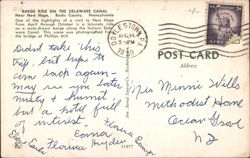 BARGE RIDE ON THE DELAWARE CANAL
Near New Hope, Bucks County, Pennsylvania
One of the highlights of a visit to New Hope
from April through October is a leisurely ride
on a mule-drawn barge along the historic Dela-
ware Canal. This scene was photographed near
the bridge at Phillips Mill.
Didn't take this
trip, but hope to
come back again—
may see you later
Misty & humid
but a total full
of interest.
Emma
Florence Hyder
Elsie
31877
DOYLESTOWN PA
PM
1956
POST CARD
Address
Miss Minnie Wells
Methodist Home
Ocean Grove
N J